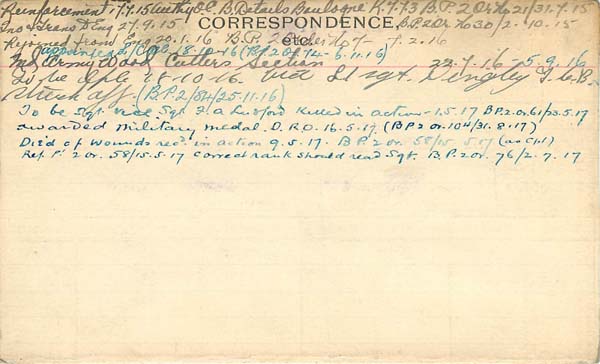 Reinforcement 7.7.15 authy O.C. B. Details Boulogne K.773 B.P. 2 Or No 21/31.7.15
CORRESPONDENCE,
etc.
Trans D Eng 27.9.15 B.P.2 Or No 30/2-10.15
Rejoined from Eng 20.1.16 B.P. 2 Order No 7- 7.2.16
appointed 18-10-16 (B.P. 2 Or 74- 6.11.16)
Army Wood Cutters Section 22.7.16 - 5.9.16
To be Cpl 18-10-16. vice Sgt. Dingley
Struck off. (B.P.2/84/25.11.16)
To be Sgt vice Sgt F. A. Ludford Killed in action - 1.5.17 B.P.2.or.61/23.5.17
awarded Military Medal. D.R.O. 16.5.17. (B.P.2 or. 104/31.8.17)
Died of wounds recd. in action 9.5.17. B.P. 2 or. 58/15 5.17 (as Cpl)
Ref. P. 2 or. 58/15.5.17 Correct rank should read Sgt. B.P. 2 or. 76/2.7.17